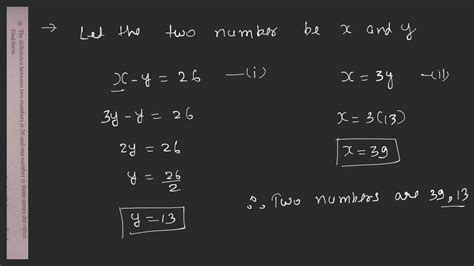 (i) The difference between two numbers is 26 and one number is three times the other. Find them.
→ Let the two number be x and y
x - y = 26 —(i)
3y - y = 26
2y = 26
y = 26/2
y = 13
x = 3y —(II)
x = 3(13)
x = 39
∴ Two numbers are 39, 13